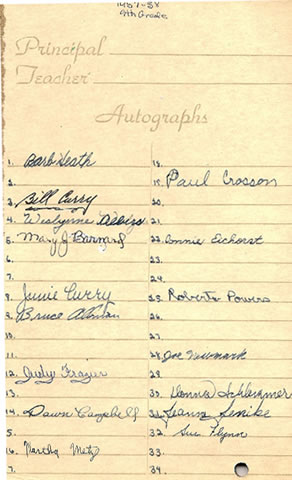 1957-58
9th Grade
Principal
Teacher
Autographs
1. Barb Heath
2.
3. Bill Curry
4. Westynne
5. Mary J Barnard
6.
7.
8. Junie Curry
9. Bruce Altman
10.
11.
12. Judy Frazier
13.
14. Dawn Campbell
15.
16. Martha Metz
17.
18.
19. Paul Crosson
20.
21.
22. Connie Eichorst
23.
24.
25. Roberta Powers
26.
27.
28. Joe Newmark
29.
30. Donna Schlemmer
31. Jeann Senike
32. Sue Flynn
33.
34.